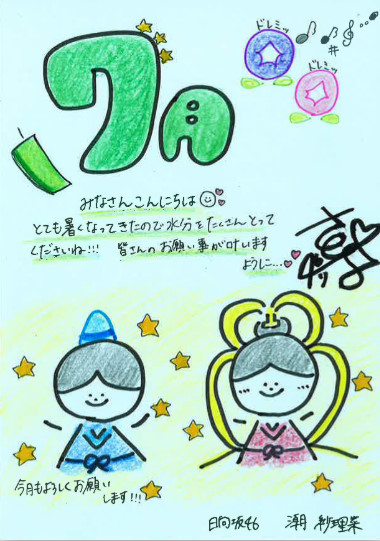 ドレミッ
ドレミッ
7月
みなさんこんにちは
とても暑くなってきたので水分をたくさんとって
くださいね!!! 皆さんのお願い事が叶います
ように…
今月もよろしくお願い
します!!!
日向坂46 潮 紗理菜